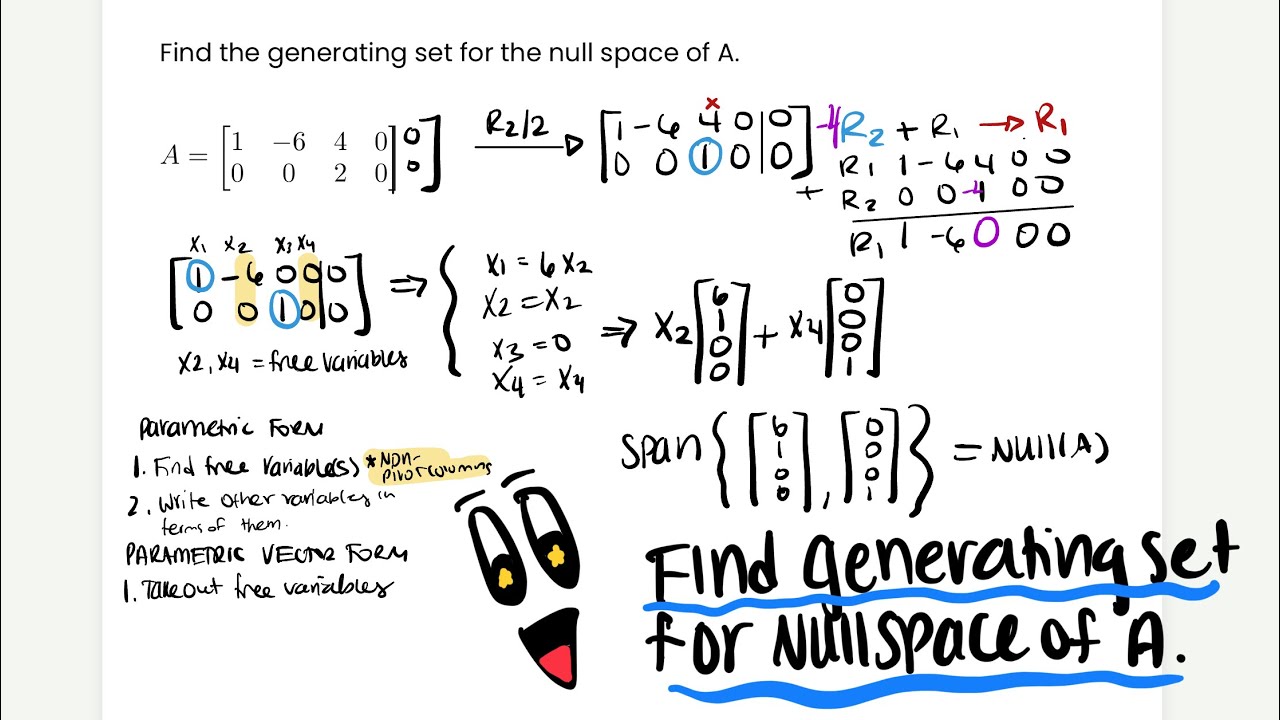 Find the generating set for the null space of A.
A = [1 -6 4 0 | 0]
[0 0 2 0 | 0]
R2/2
[1 -6 4 0 | 0]
[0 0 1 0 | 0]
x
-4R2 + R1 → R1
R1 1 -6 4 0 0
+ R2 0 0 -4 0 0
R1 1 -6 0 0 0
x1 x2 x3 x4
[1 -6 0 0 | 0]
[0 0 1 0 | 0]
x2, x4 = free variables
⇒ {
x1 = 6x2
x2 = x2
x3 = 0
x4 = x4
⇒ x2 [6 1 0 0] + x4 [0 0 0 1]
Parametric Form
1. Find free variable(s) *Non-
pivot columns
2. Write other variables in
terms of them.
PARAMETRIC VECTOR FORM
1. Takeout free variables
span { [6 1 0 0], [0 0 0 1] } = Null(A)
Find generating set
for Nullspace of A.